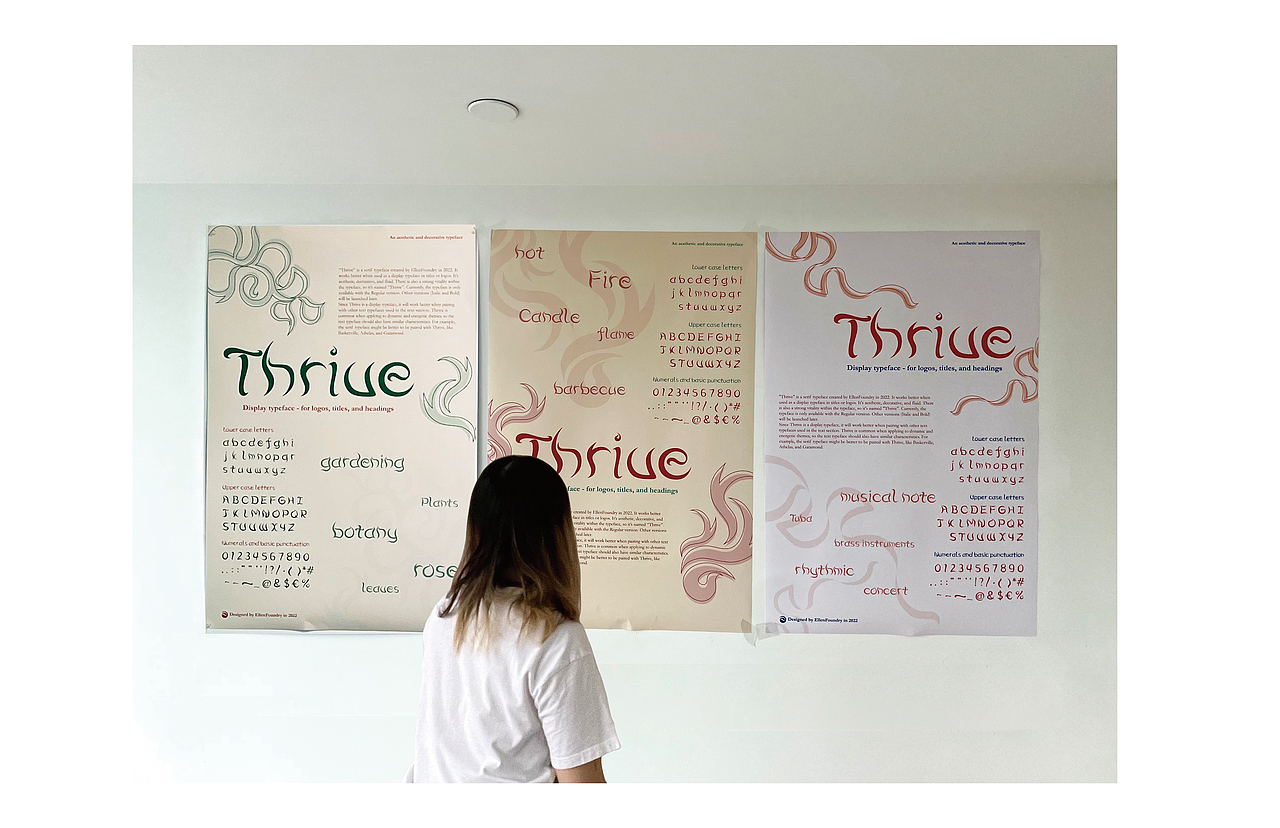 An aesthetic and decorative typeface
"Thrive" is a serif typeface created by EllenFoundry in 2022. It
works better when used as a display typeface in titles or logos. It's
aesthetic, decorative, and fluid. There is also a strong vitality within
the typeface, so it's named "Thrive". Currently, the typeface is only
available with the Regular version. Other versions (Italic and Bold)
will be launched later.
Since Thrive is a display typeface, it will work better when pairing
with other text typefaces used in the text section. Thrive is
common when applying to dynamic and energetic themes, so the
text typeface should also have similar characteristics. For example,
the serif typeface might be better to be paired with Thrive, like
Baskerville, Athelas, and Garamond.
Thrive
Display typeface - for logos, titles, and headings
Lower case letters
abcdefghi
jklmnopqr
stuvwxyz
Upper case letters
ABCDEFGHI
JKLMNOPQR
STUVWXYZ
Numerals and basic punctuation
01234567890
gardening
Plants
botany
rose
leaves
Designed by EllenFoundry in 2022
An aesthetic and decorative typeface
hot
Fire
Candle
flame
barbecue
Lower case letters
abcdefghi
jklmnopqr
stuvwxyz
Upper case letters
ABCDEFGHI
JKLMNOPQR
STUVWXYZ
Numerals and basic punctuation
01234567890
Thrive
for logos, titles, and headings
created by EllenFoundry in 2022. It works better
typeface in titles or logos. It's aesthetic, decorative, and
vitality within the typeface, so it's named "Thrive"
available with the Regular version. Other versions
typeface should also have similar characteristics.
might be better to be paired with Thrive, like
An aesthetic and decorative typeface
Thrive
Display typeface - for logos, titles, and headings
"Thrive" is a serif typeface created by EllenFoundry in 2022. It works better when
used as a display typeface in titles or logos. It's aesthetic, decorative, and fluid. There
is also a strong vitality within the typeface, so it's named "Thrive". Currently, the
typeface is only available with the Regular version. Other versions (Italic and Bold)
will be launched later.
Since Thrive is a display typeface, it will work better when pairing with other text
typefaces used in the text section. Thrive is common when applying to dynamic and
energetic themes, so the text typeface should also have similar characteristics. For
example, the serif typeface might be better to be paired with Thrive, like Baskerville,
Athelas, and Garamond.
Lower case letters
abcdefghi
jklmnopqr
stuvwxyz
Upper case letters
ABCDEFGHI
JKLMNOPQR
STUVWXYZ
Numerals and basic punctuation
01234567890
musical note
Tuba
brass instruments
rhythmic
concert
Designed by EllenFoundry in 2022